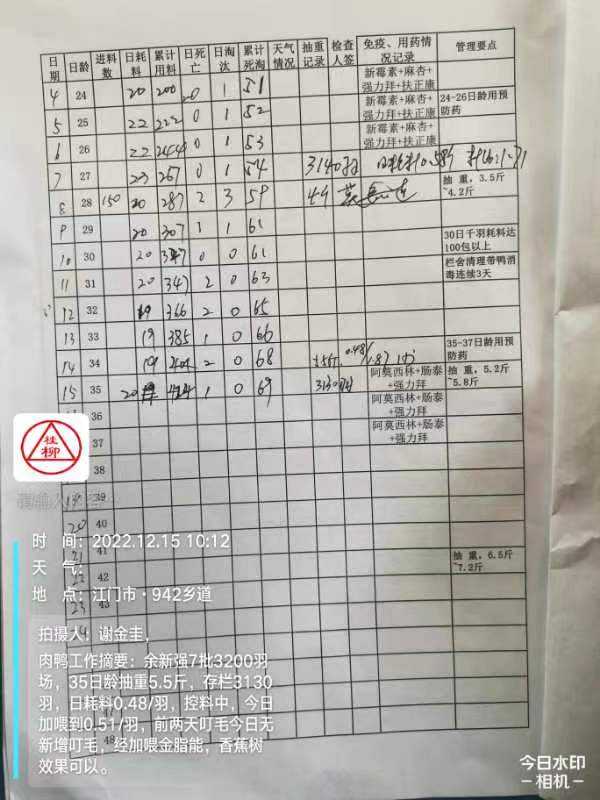 日期 日龄 进料数 日耗料 累计用料 日死亡 日淘汰 累计死淘 天气情况 抽重记录 检查人签 免疫、用药情况记录 管理要点
4 24 20 200 0 1 51 新霉素+麻杏+强力拜+扶正康
5 25 22 222 0 1 52 新霉素+麻杏+强力拜+扶正康 24-26日龄用预防药
6 26 22 244 0 1 53 新霉素+麻杏+强力拜+扶正康
7 27 23 267 0 1 54 3140羽
8 28 150 20 287 2 3 59 4斤 抽重，3.5斤~4.2斤
9 29 20 307 1 1 61
10 30 20 327 0 0 61 30日千羽耗料达100包以上
11 31 20 347 2 0 63 栏舍清理带鸭消毒连续3天
12 32 19 366 2 0 65
13 33 19 385 1 0 66
14 34 19 404 2 0 68 0.48/ 35-37日龄用预防药
15 35 20 424 1 0 69 3130羽 阿莫西林+肠泰+强力拜 抽重，5.2斤~5.8斤
36 阿莫西林+肠泰+强力拜
37 阿莫西林+肠泰+强力拜
38
39
20 40
21 41 抽重，6.5斤~7.2斤
22 42
23 43
48
桂柳
时 间：2022.12.15 10:12
天 气：
地 点：江门市·942乡道
拍摄人：谢金圭，
肉鸭工作摘要：余新强7批3200羽
场，35日龄抽重5.5斤，存栏3130
羽，日耗料0.48/羽，控料中，今日
加喂到0.51/羽，前两天叮毛今日无
新增叮毛，经加喂金脂能，香蕉树
效果可以。
今日水印
-相机-